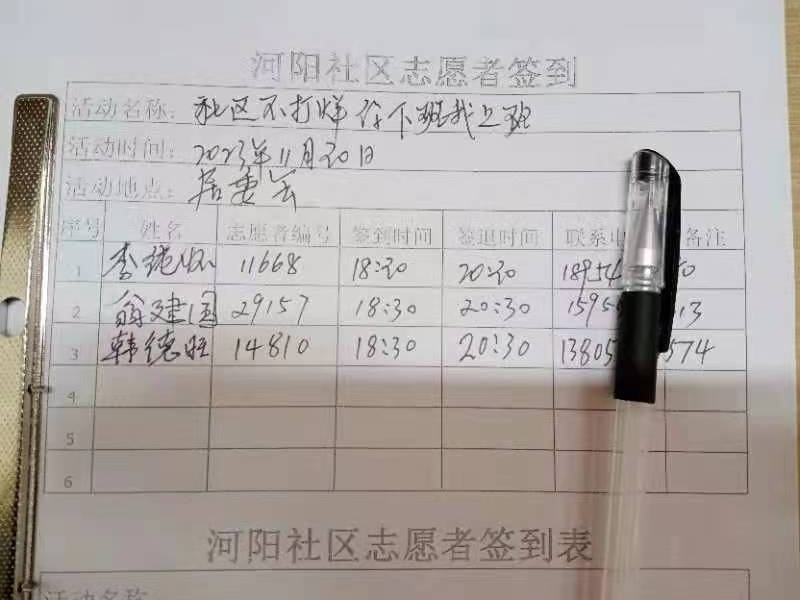 河阳社区志愿者签到
活动名称：社区不打烊 你下班我上班
活动时间：2023年11月30日
活动地点：居委会
序号 姓名 志愿者编号 签到时间 签退时间 联系电 备注
1 李 11668 18:30 20:30 18954 0
2 翁建国 29157 18:30 20:30 1595 13
3 韩德旺 14810 18:30 20:30 13805 574
4
5
6
河阳社区志愿者签到表
活动名称